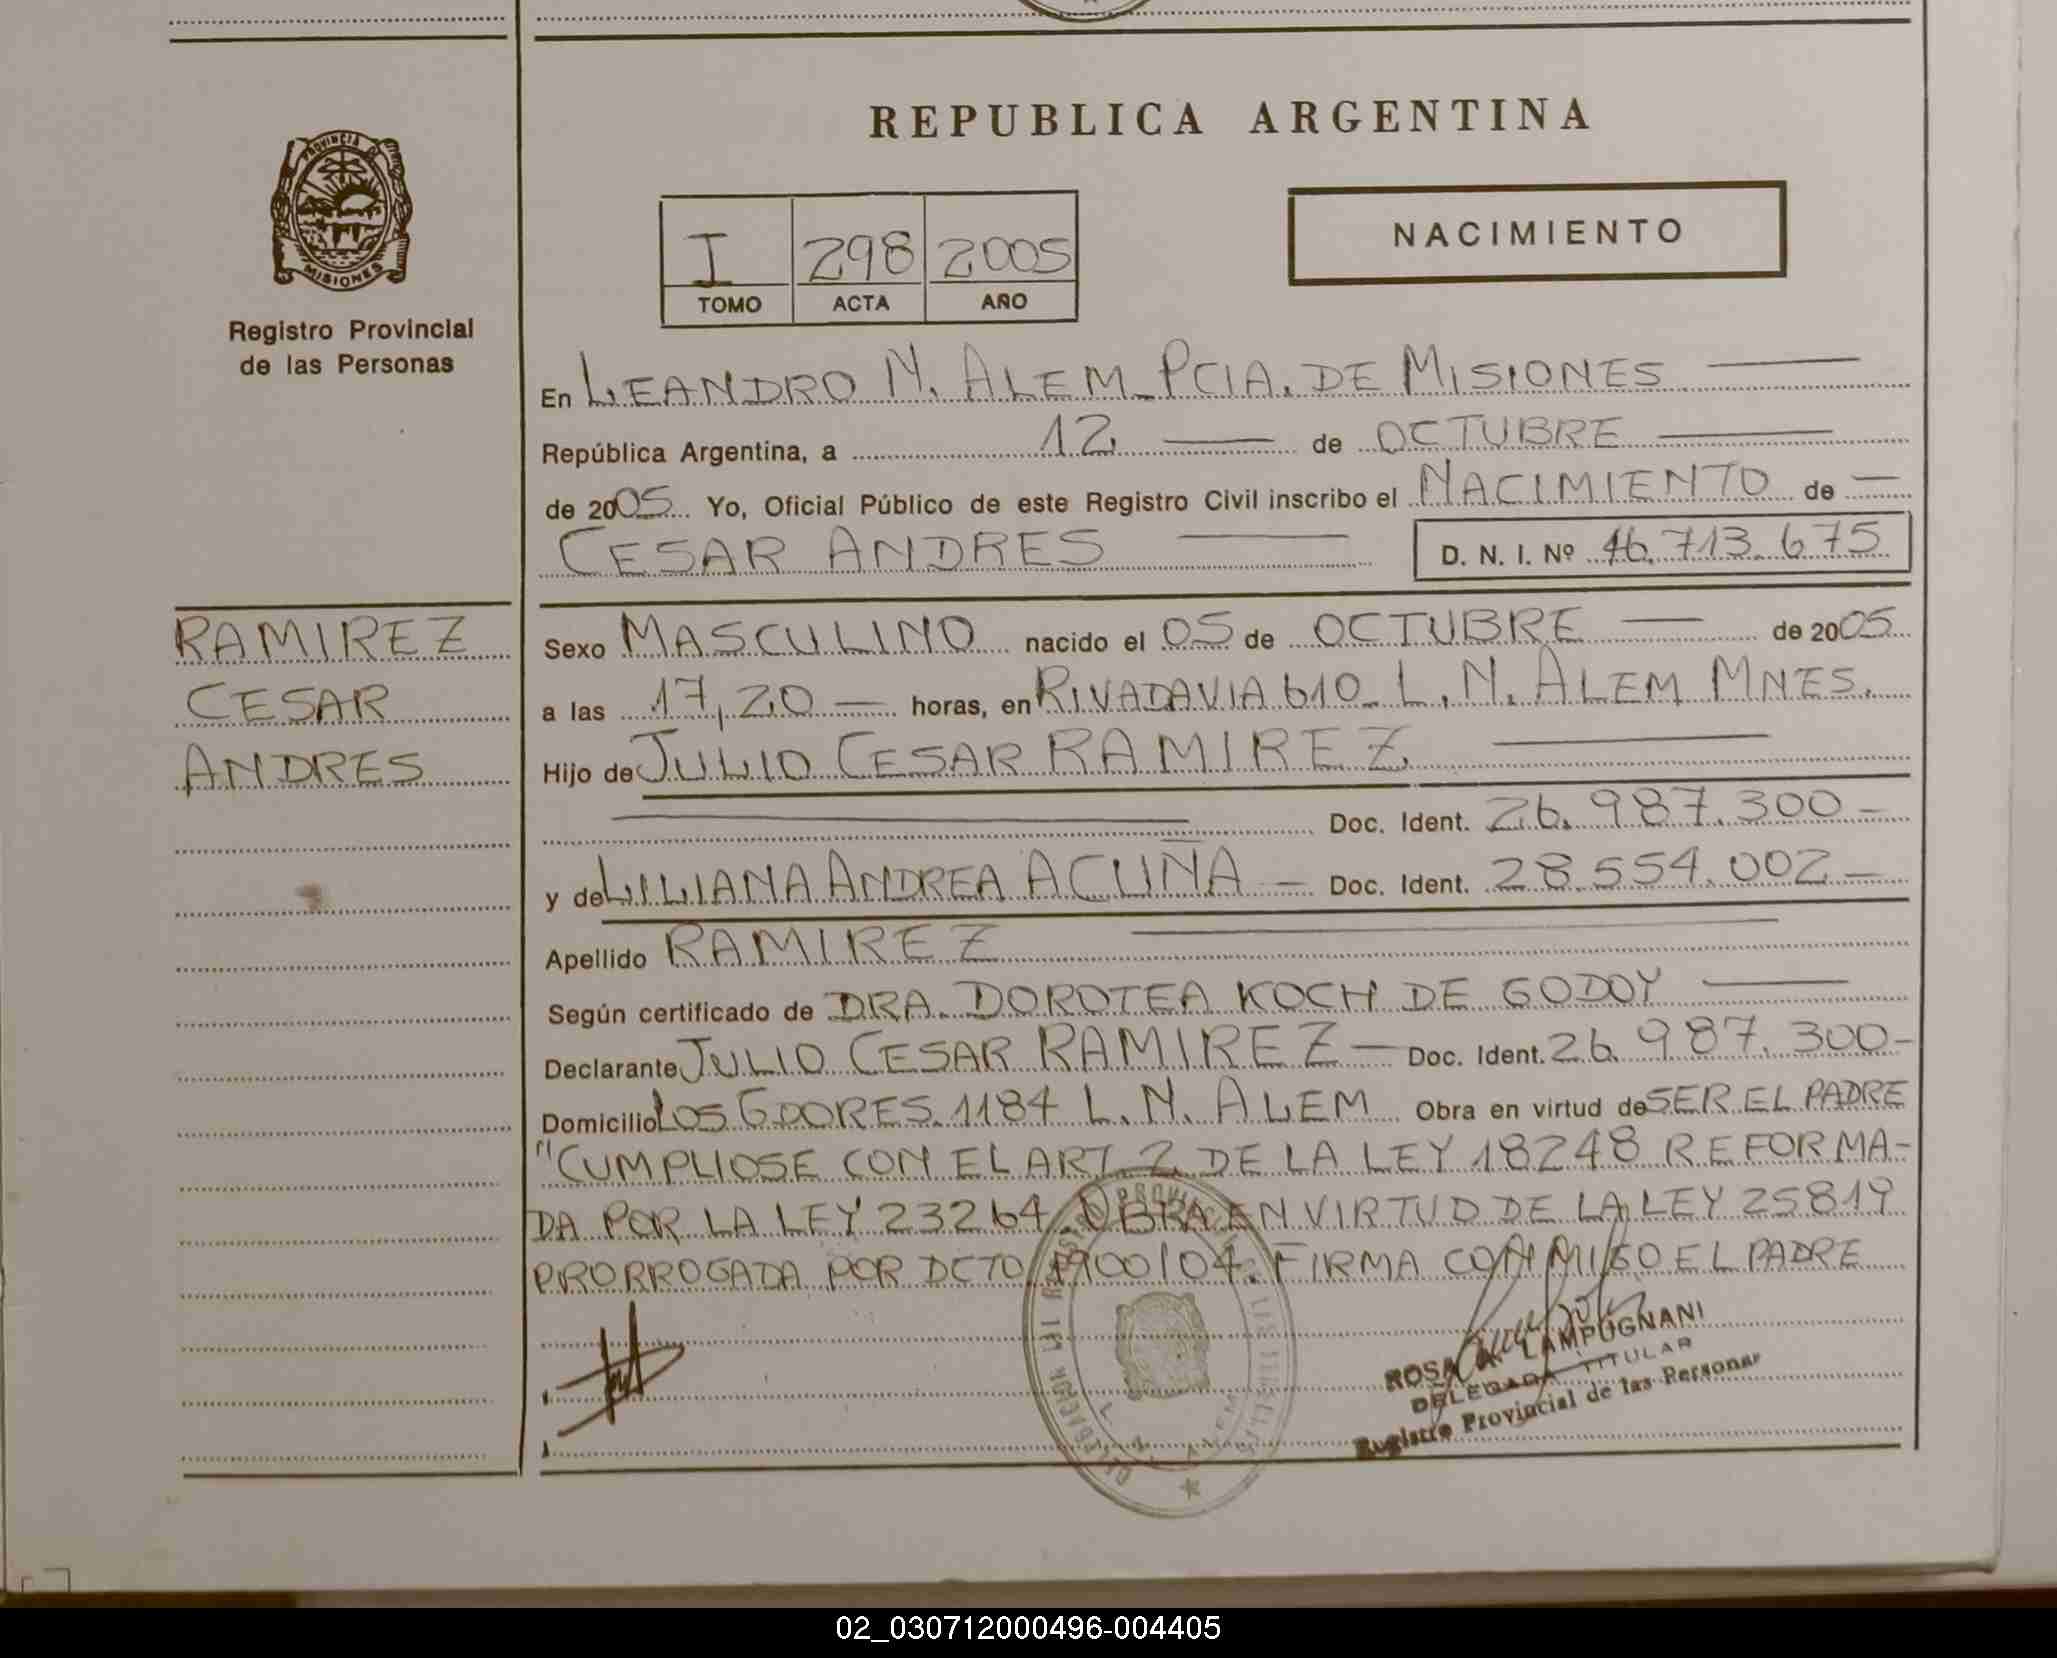 REPUBLICA ARGENTINA
PROVINCIA DE
MISIONES
Registro Provincial
de las Personas
I 298 2005
TOMO ACTA AÑO
NACIMIENTO
En LEANDRO N. ALEM_PCIA. DE MISIONES
República Argentina, a 12 de OCTUBRE
de 2005 Yo, Oficial Público de este Registro Civil inscribo el NACIMIENTO de
CESAR ANDRES D. N. I. Nº 46.713.675
RAMIREZ
CESAR
ANDRES
Sexo MASCULINO nacido el 05 de OCTUBRE de 2005
a las 17,20 horas, en RIVADAVIA 610_ L.N. ALEM MNES.
Hijo de JULIO CESAR RAMIREZ
Doc. Ident. 26.987.300-
y de LILIANA ANDREA ACUÑA - Doc. Ident. 28.554.002-
Apellido RAMIREZ
Según certificado de DRA. DOROTEA KOCH DE GODOY
Declarante JULIO CESAR RAMIREZ - Doc. Ident. 26.987.300-
Domicilio 1184 L.N. ALEM Obra en virtud de SER EL PADRE
"CUMPLIOSE CON EL ART. 2 DE LA LEY 18248 REFORMA-
DA POR LA LEY 23264. OBRA EN VIRTUD DE LA LEY 25819
PRORROGADA POR DCTO 1900/04. FIRMA CONMIGO EL PADRE
ROSA A. LAMPUGNANI
DELEGADA TITULAR
Registro Provincial de las Personas
L. N. ALEM
02_030712000496-004405